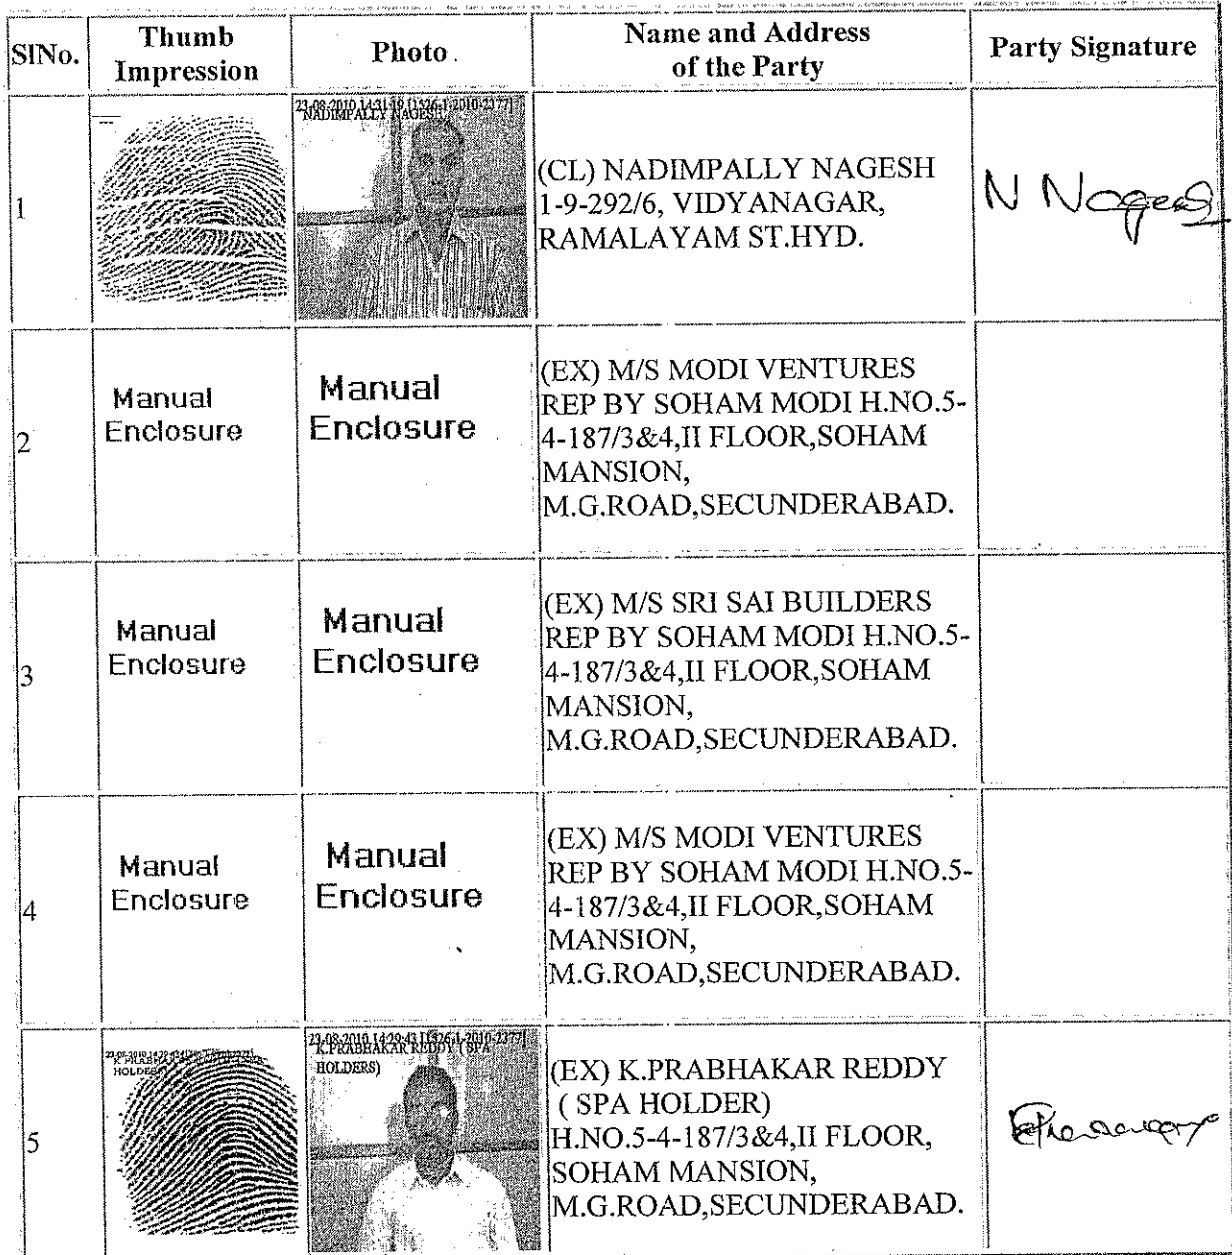 SlNo.
Thumb
Impression
Photo
Name and Address
of the Party
Party Signature
1
23-08-2010 14:31:19 [1526-1-2010-2377]
NADIMPALLY NAGESH
(CL) NADIMPALLY NAGESH
1-9-292/6, VIDYANAGAR,
RAMALAYAM ST.HYD.
N Nagesh
2
Manual
Enclosure
Manual
Enclosure
(EX) M/S MODI VENTURES
REP BY SOHAM MODI H.NO.5-
4-187/3&4,II FLOOR,SOHAM
MANSION,
M.G.ROAD,SECUNDERABAD.
3
Manual
Enclosure
Manual
Enclosure
(EX) M/S SRI SAI BUILDERS
REP BY SOHAM MODI H.NO.5-
4-187/3&4,II FLOOR,SOHAM
MANSION,
M.G.ROAD,SECUNDERABAD.
4
Manual
Enclosure
Manual
Enclosure
(EX) M/S MODI VENTURES
REP BY SOHAM MODI H.NO.5-
4-187/3&4,II FLOOR,SOHAM
MANSION,
M.G.ROAD,SECUNDERABAD.
5
23-08-2010 14:29:43 [1526-1-2010-2377]
K.PRABHAKAR REDDY ( SPA
HOLDERS)
(EX) K.PRABHAKAR REDDY
( SPA HOLDER)
H.NO.5-4-187/3&4,II FLOOR,
SOHAM MANSION,
M.G.ROAD,SECUNDERABAD.